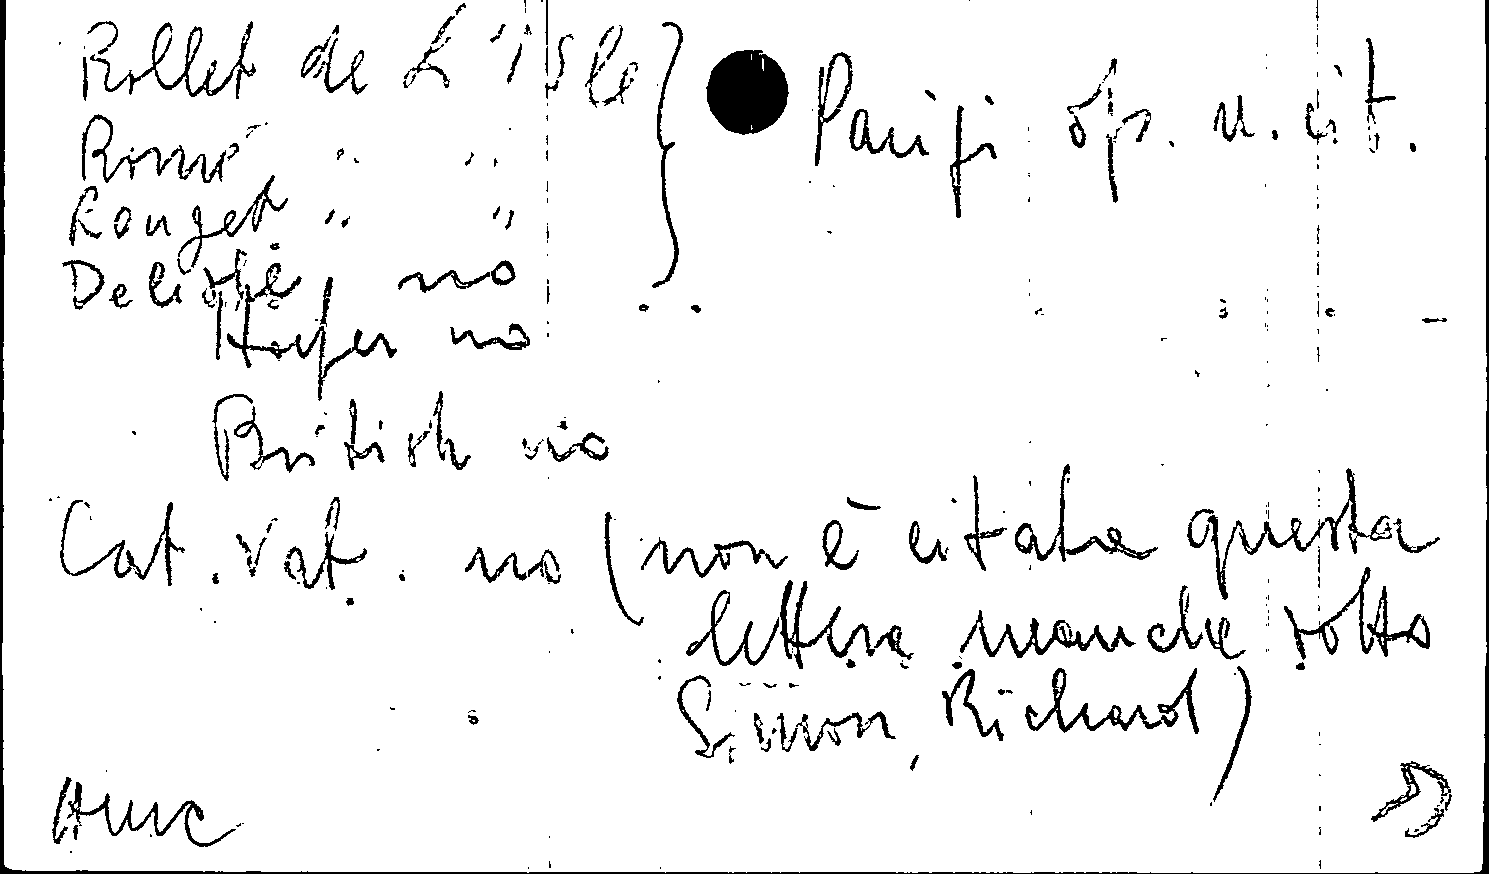 Rollet de L'Isle } Parigi op. n. cit.
Romé " "
Rouget " "
Delisle no
Hoefer no
British no
Cat. Vat. no (non è citata questa
lettera neanche sotto
Simon, Richard)